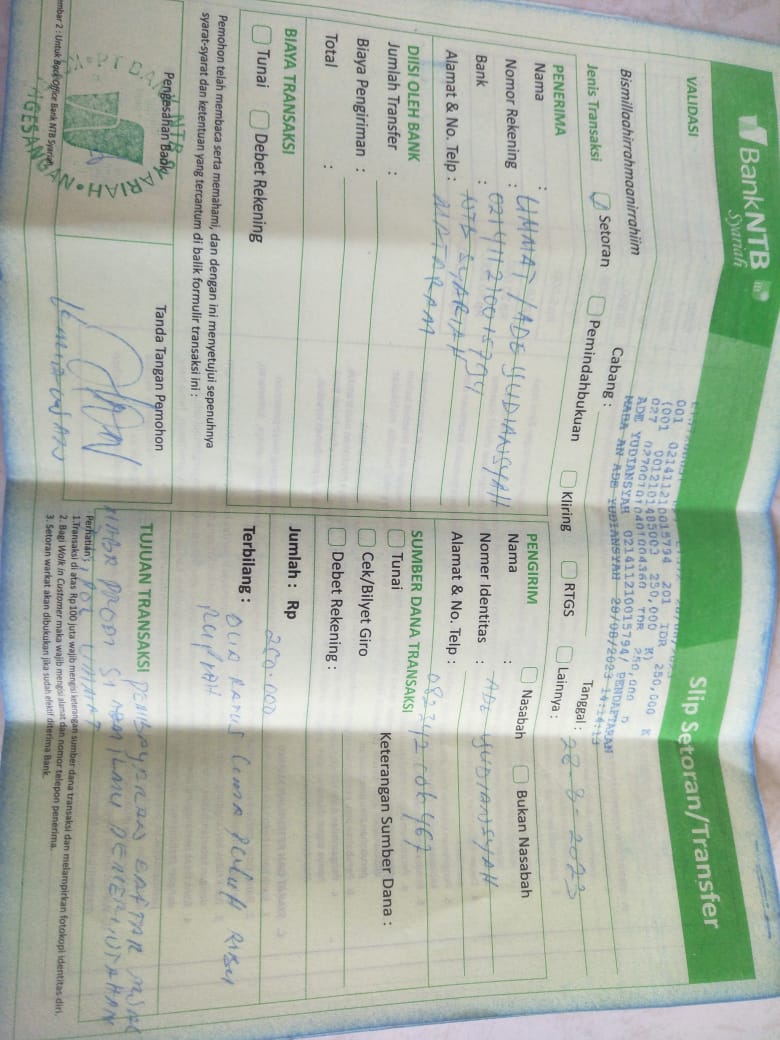 BankNTB
Syariah
Slip Setoran/Transfer
VALIDASI
001 021411210015794 201 IDR 250,000 K
(001 0012101485003 250,000 K)
027 0270010104001004360 IDR 250,000 D
ADE YUDIANSYAH 021411210015794/ PENDAFTARAN
MABA AN ADE YUDIANSYAH 28/08/2023 14:14:13
Bismillaahirrahmaanirrahiim
Cabang :
Tanggal : 28-8-2023
Jenis Transaksi
Setoran
Pemindahbukuan
Kliring
RTGS
Lainnya :
PENERIMA
Nama : UMMAT / ADE YUDIANSYAH
Nomor Rekening : 021411210015794
Bank : NTB SYARIAH
Alamat & No. Telp : MATARAM
PENGIRIM
Nasabah
Bukan Nasabah
Nama :
Nomer Identitas : ADE YUDIANSYAH
Alamat & No. Telp :
DIISI OLEH BANK
Jumlah Transfer :
Biaya Pengiriman :
Total :
SUMBER DANA TRANSAKSI
Tunai
Keterangan Sumber Dana :
Cek/Bilyet Giro
Debet Rekening :
BIAYA TRANSAKSI
Tunai
Debet Rekening
Jumlah : Rp 250.000
Terbilang : DUA RATUS LIMA PULUH RIBU
RUPIAH
Pemohon telah membaca serta memahami, dan dengan ini menyetujui sepenuhnya
syarat-syarat dan ketentuan yang tercantum di balik formulir transaksi ini :
Pengesahan Bank
Tanda Tangan Pemohon
TUJUAN TRANSAKSI PEMBAYARAN DAFTAR
PRODI S1 ILMU PEMERINTAHAN
UMMAT
Perhatian :
1.Transaksi di atas Rp 100 juta wajib mengisi keterangan sumber dana transaksi dan melampirkan fotokopi identitas diri.
2. Bagi Walk in Customer maka wajib mengisi alamat dan nomor telepon penerima.
3. Setoran warkat akan dibukukan jika sudah efektif diterima Bank.
mbar 2 : Untuk Back Office Bank NTB Syariah